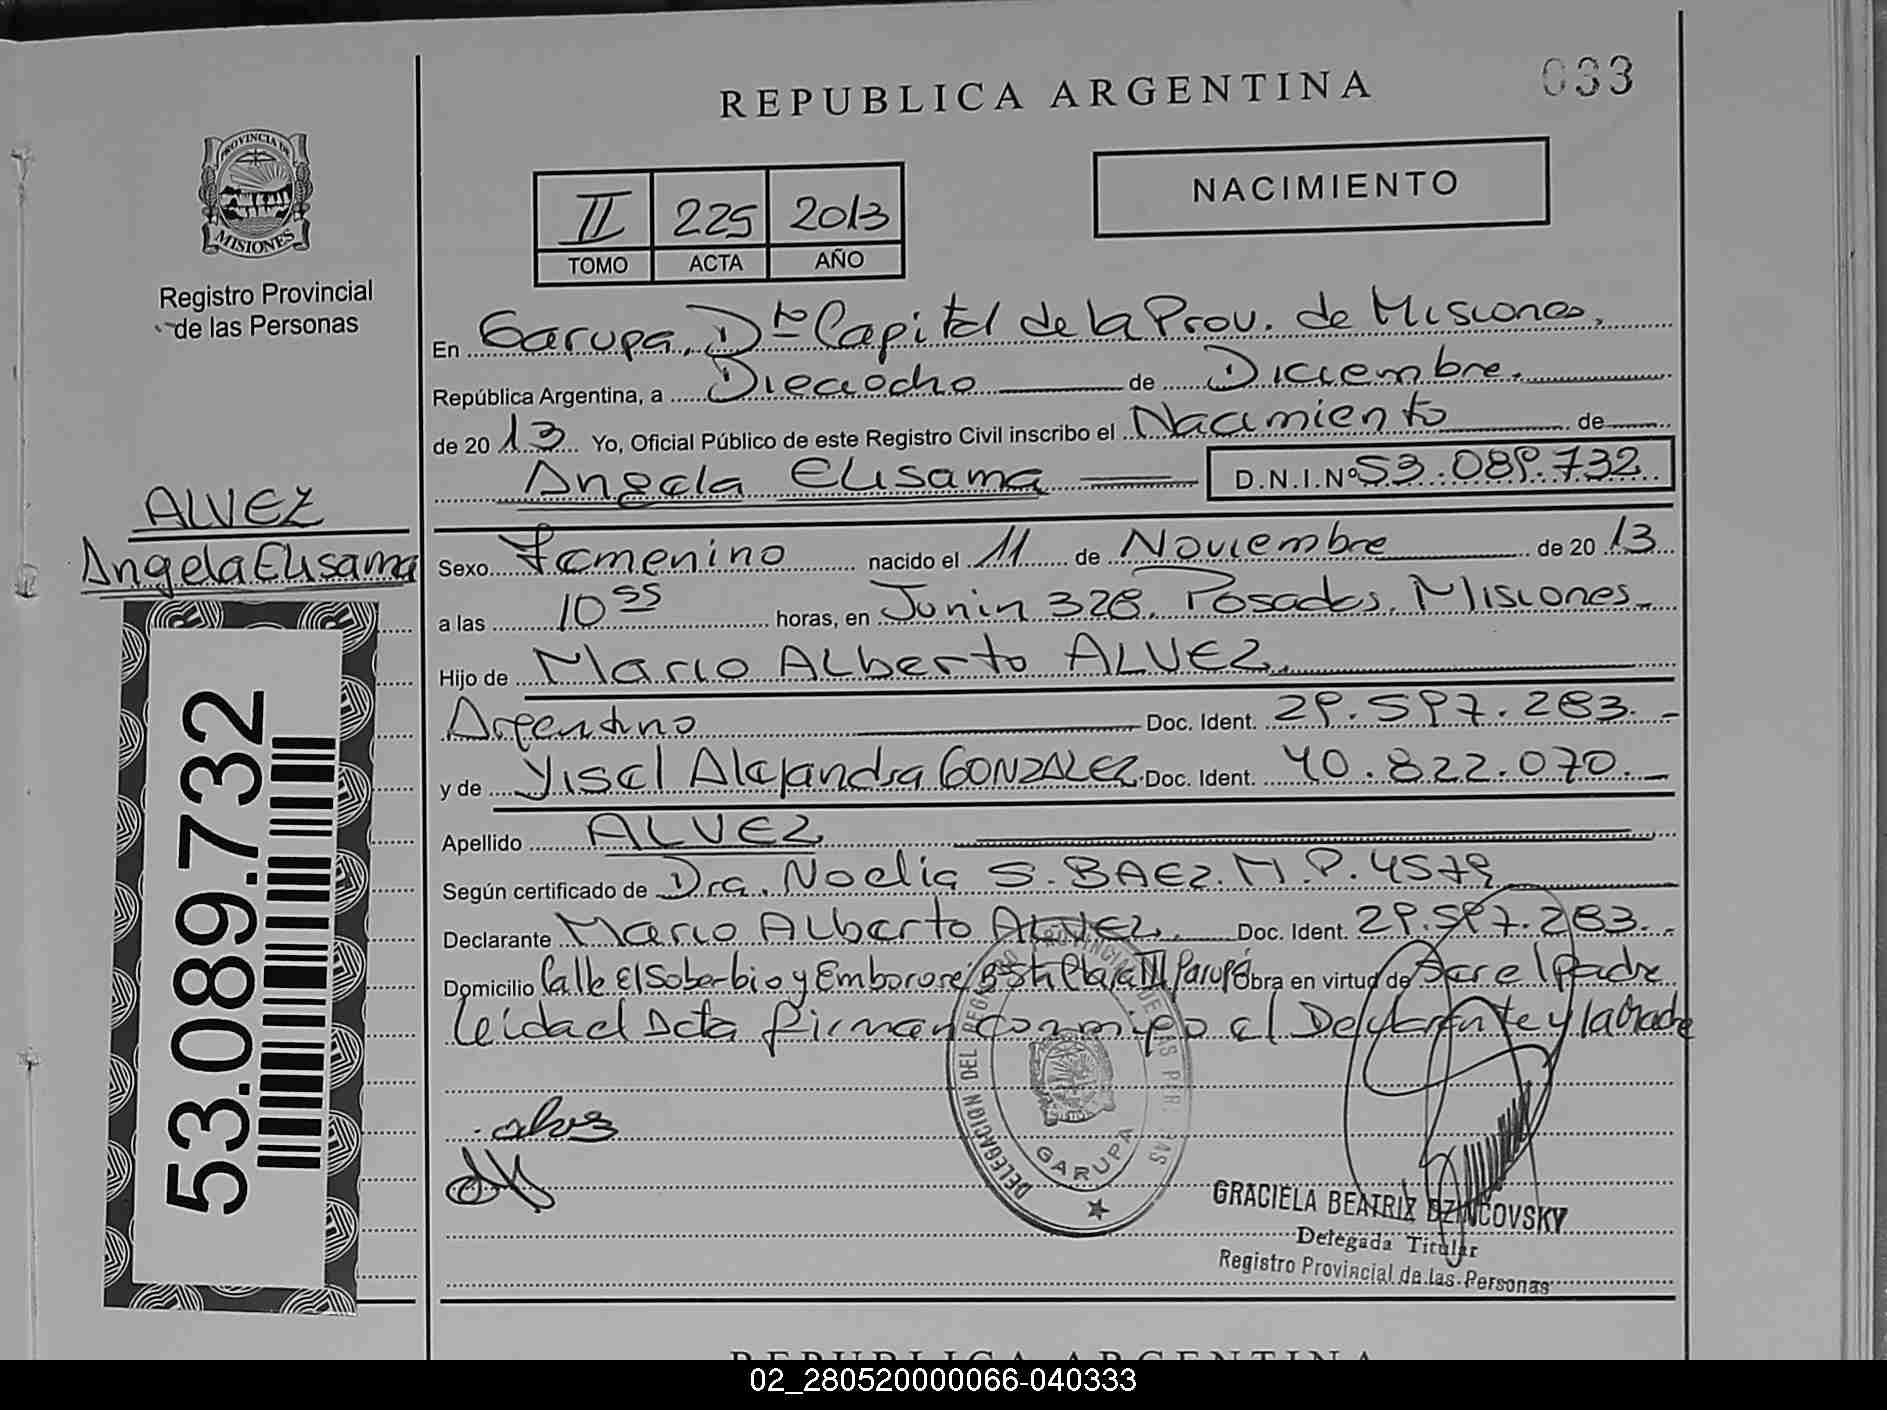 REPUBLICA ARGENTINA
033
PROVINCIA DE
MISIONES
Registro Provincial
de las Personas
II 225 2013
TOMO ACTA AÑO
NACIMIENTO
En Garupa, Dto Capital de la Prov. de Misiones,
República Argentina, a Dieciocho de Diciembre.
de 20 13 Yo, Oficial Público de este Registro Civil inscribo el Nacimiento de
Angela Elisama
D.N.I.Nº 53.089.732
ALVEZ
Angela Elisama
53.089.732
Sexo Femenino nacido el 11 de Noviembre de 20 13
a las 10 55 horas, en Junin 328. Posadas. Misiones
Hijo de Mario Alberto ALVEZ.
Argentino Doc. Ident. 29.597.283.
y de Yisel Alejandra GONZALEZ Doc. Ident. 40.822.070.
Apellido ALVEZ
Según certificado de Dra. Noelia S. BAEZ. M.P. 4579
Declarante Mario Alberto ALVEZ. Doc. Ident. 29.597.283.
Domicilio Calle El Soberbio y Emborore Sta Clara III Garupá Obra en virtud de Ser el Padre
leida el Acta firman conmigo el Declarante y la Madre
DELEGACION DEL REGISTRO PROVINCIAL DE LAS PERSONAS
GARUPA
GRACIELA BEATRIZ DZINCOVSKY
Delegada Titular
Registro Provincial de las Personas
REPUBLICA ARGENTINA
02_280520000066-040333